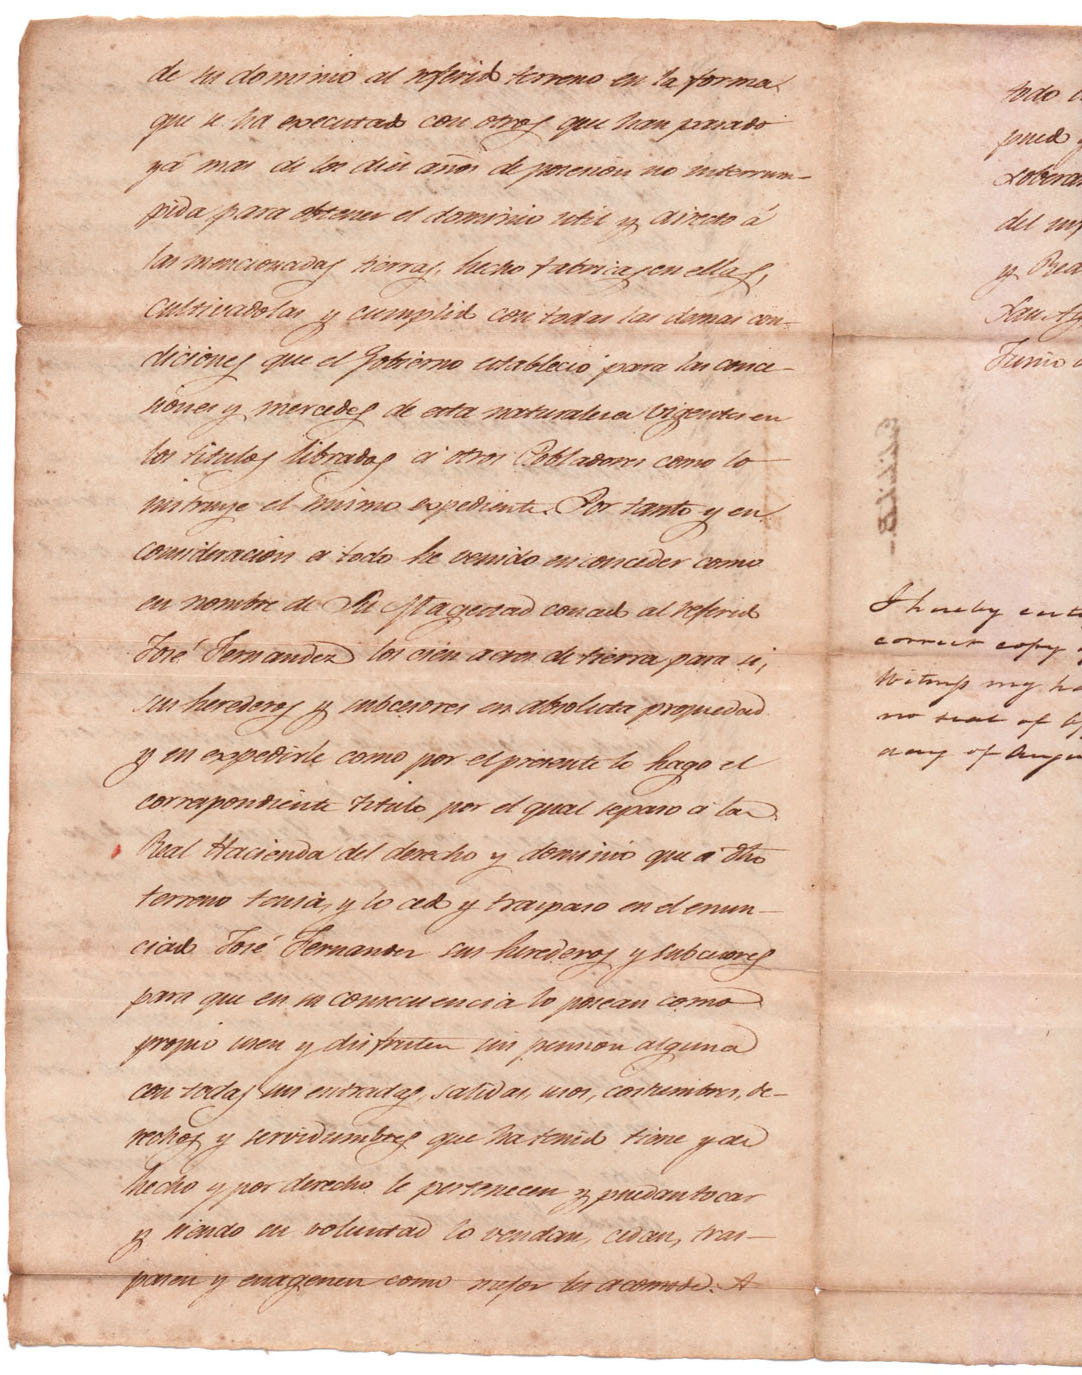 de su dominio al referido terreno en la forma
que se ha executado con otros que han pasado
yá mas de los diez años de posesion no interrum-
pida para obtener el dominio util y directo á
las mencionadas tierras, hecho fabricas en ellas,
cultivadolas y cumplido con todas las demas con-
diciones que el Gobierno estableció para las conce-
siones y mercedes de esta naturaleza vigentes en
los titulos librados á otros Pobladores como lo
instruye el mismo expediente. Por tanto y en
consideracion a todo he venido en conceder como
en nombre de Su Magestad concedo al referido
José Fernandez los cien acres de tierra para si,
sus herederos y subcesores en absoluta propiedad
y en expedirle como por el presente lo hago el
correspondiente titulo por el qual separo a la
Real Hacienda del derecho y dominio que á dho
terreno tenia, y lo cedo y traspaso en el enun-
ciado José Fernandez sus herederos y subcesores
para que en su consecuencia lo posean como
propio usen y disfruten sin pension alguna
con todas sus entradas, salidas, usos, costumbres, de-
rechos y servidumbres que ha tenido tiene y de
hecho y por derecho le pertenecen y puedan tocar
y siendo su voluntad lo vendan, cedan, tras-
pasen y enagenen como mejor les acomode. A
todo
del
y Rea
San Ag
Junio
I hereby certi
correct copy of
Witness my ha
no seal of
day of Augu